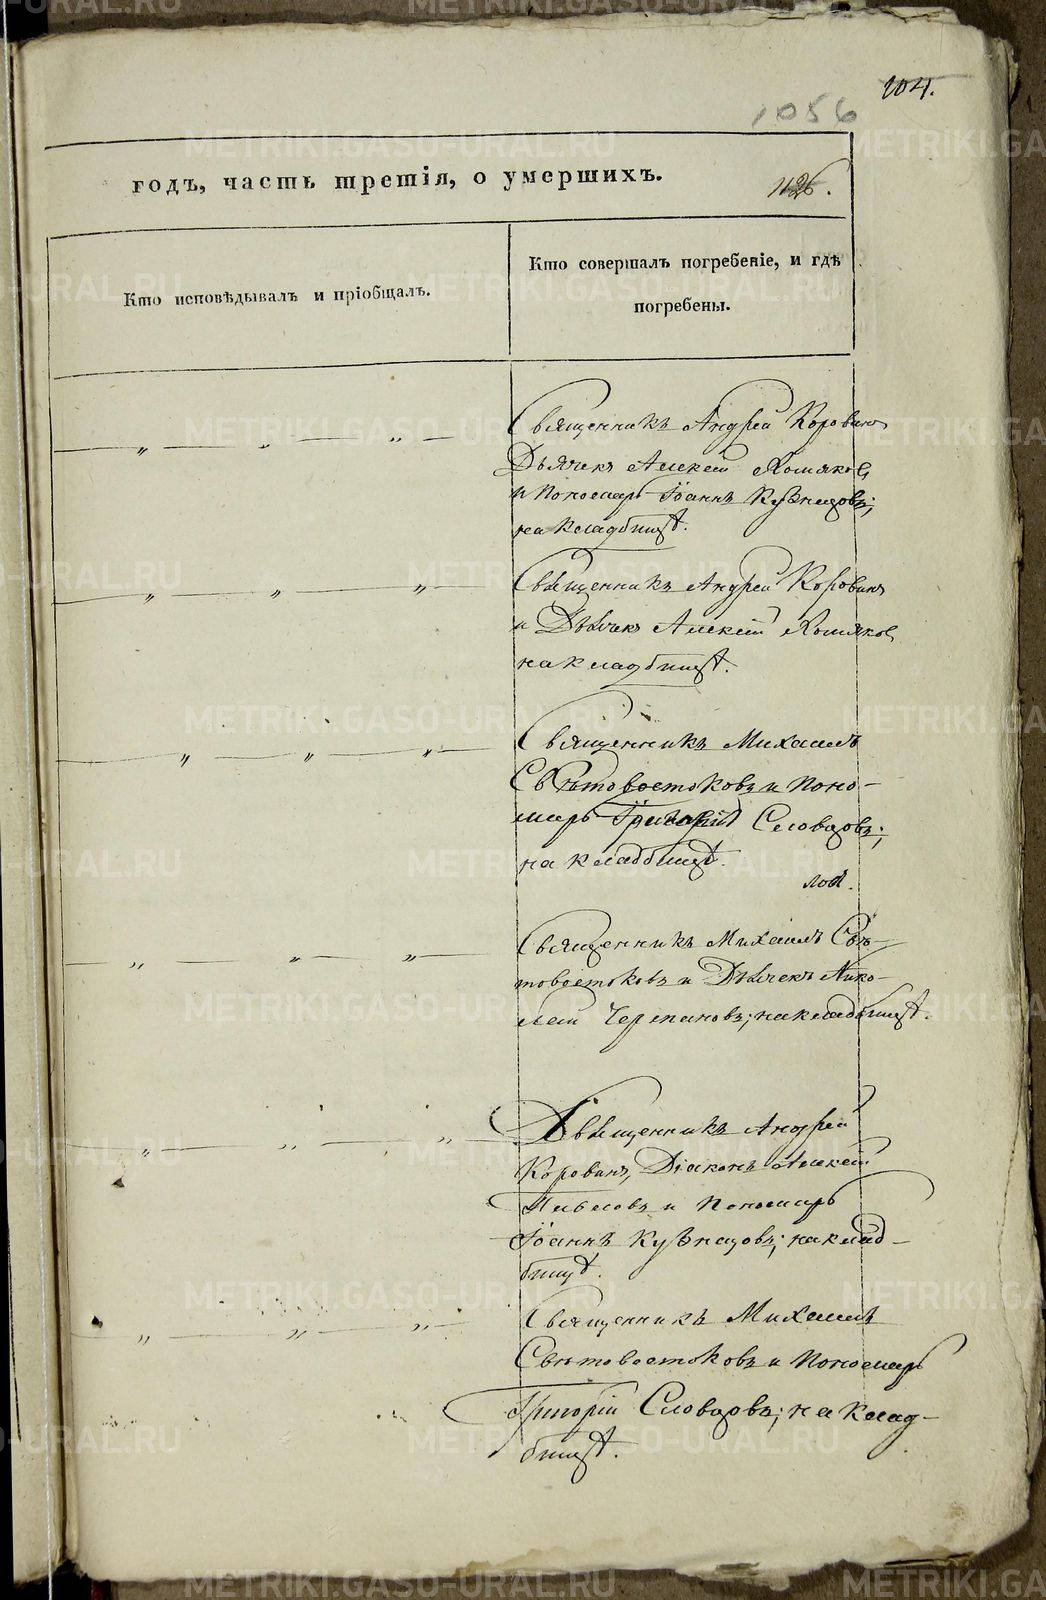 104.
1056
годъ, часть третія, о умершихъ.
1126.
Кто исповѣдывалъ и пріобщалъ.
Кто совершалъ погребеніе, и гдѣ
погребены.
Священникъ Андрей Коровинъ
Дьячекъ Алексей Хомяковъ
и Пономарь Іоаннъ Кузнецовъ;
на кладбищѣ.
Священникъ Андрей Коровинъ
и Дьячекъ Алексей Хомяковъ
на кладбищѣ.
Священникъ Михаилъ
Свѣтовостоковъ и Поно-
марь Григорій Словцовъ;
на кладбищѣ.
Священникъ Михаилъ Свѣ-
товостоковъ и Дьячекъ Нико-
лай Черепановъ; на кладбищѣ.
Священникъ Андрей
Коровинъ, Діаконъ Алексей
и Пономарь
Іоаннъ Кузнецовъ; на клад-
бищѣ.
Священникъ Михаилъ
Свѣтовостоковъ и Пономарь
Григорій Словцовъ; на клад-
бищѣ.
METRIKI.GASO-URAL.RU